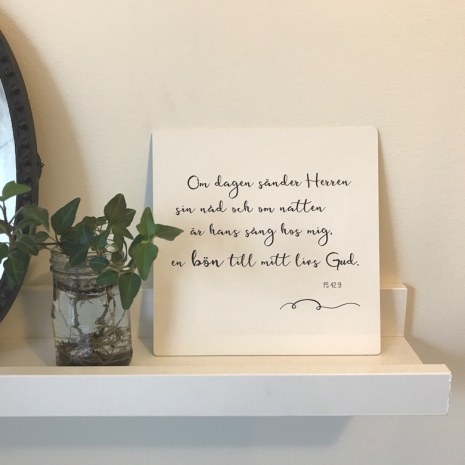 Om dagen sänder Herren
sin nåd och om natten
är hans sång hos mig,
en bön till mitt livs Gud.
PS 42:9